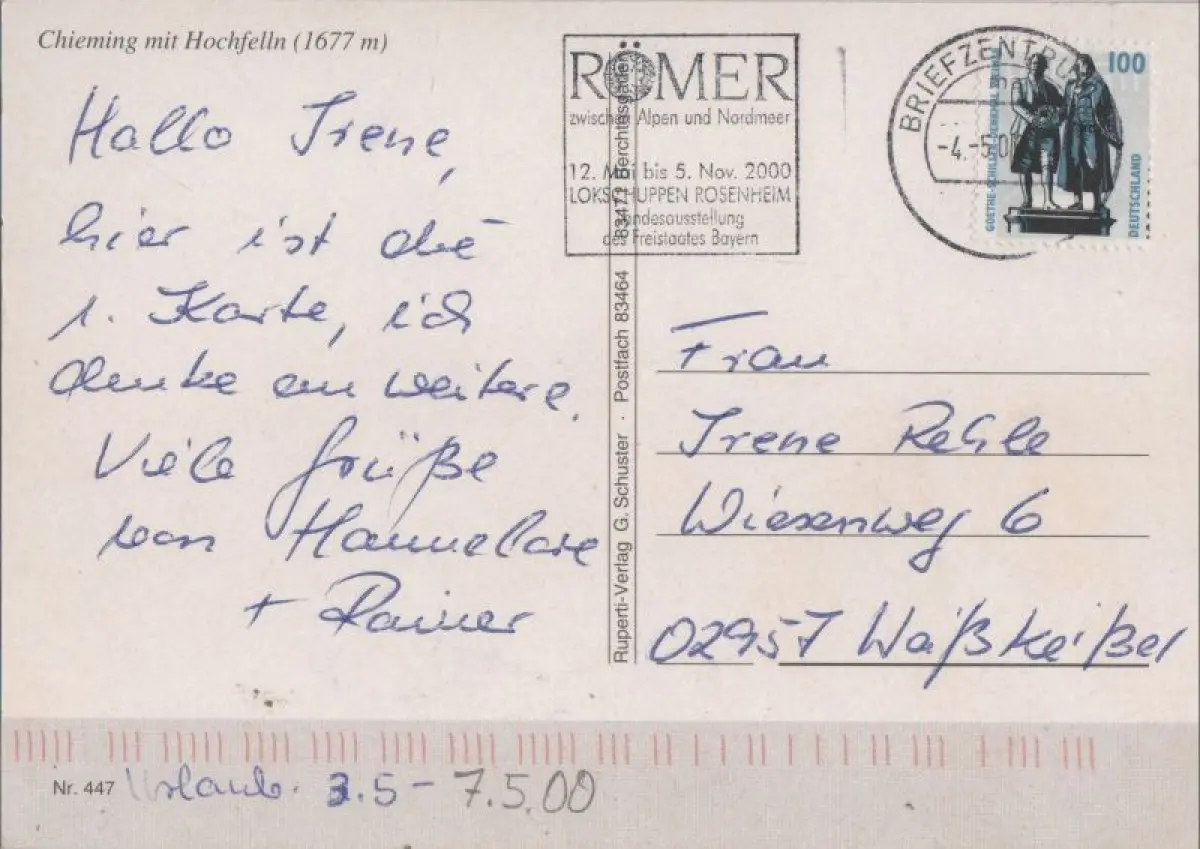 Chieming mit Hochfelln (1677 m)
Hallo Irene,
hier ist die
1. Karte, ich
denke an weitere.
Viele Grüße
von Hannelore
+ Rainer
RÖMER
zwischen Alpen und Nordmeer
12. Mai bis 5. Nov. 2000
LOKSCHUPPEN ROSENHEIM
Landesausstellung
des Freistaates Bayern
BRIEFZENTRUM
-4.-5.00
100
GOETHE-SCHILLER-DENKMAL WEIMAR
DEUTSCHLAND
Ruperti-Verlag G. Schuster · Postfach 83464 83471 Berchtesgaden
Frau
Irene Rehle
Wiesenweg 6
02957 Waißkeißel
Nr. 447 Urlaub. 3.5 - 7.5.00